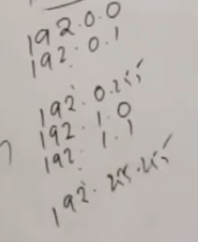 192.0.0
192.0.1
192.0.255
192.1.0
192.1.1
192.255.255